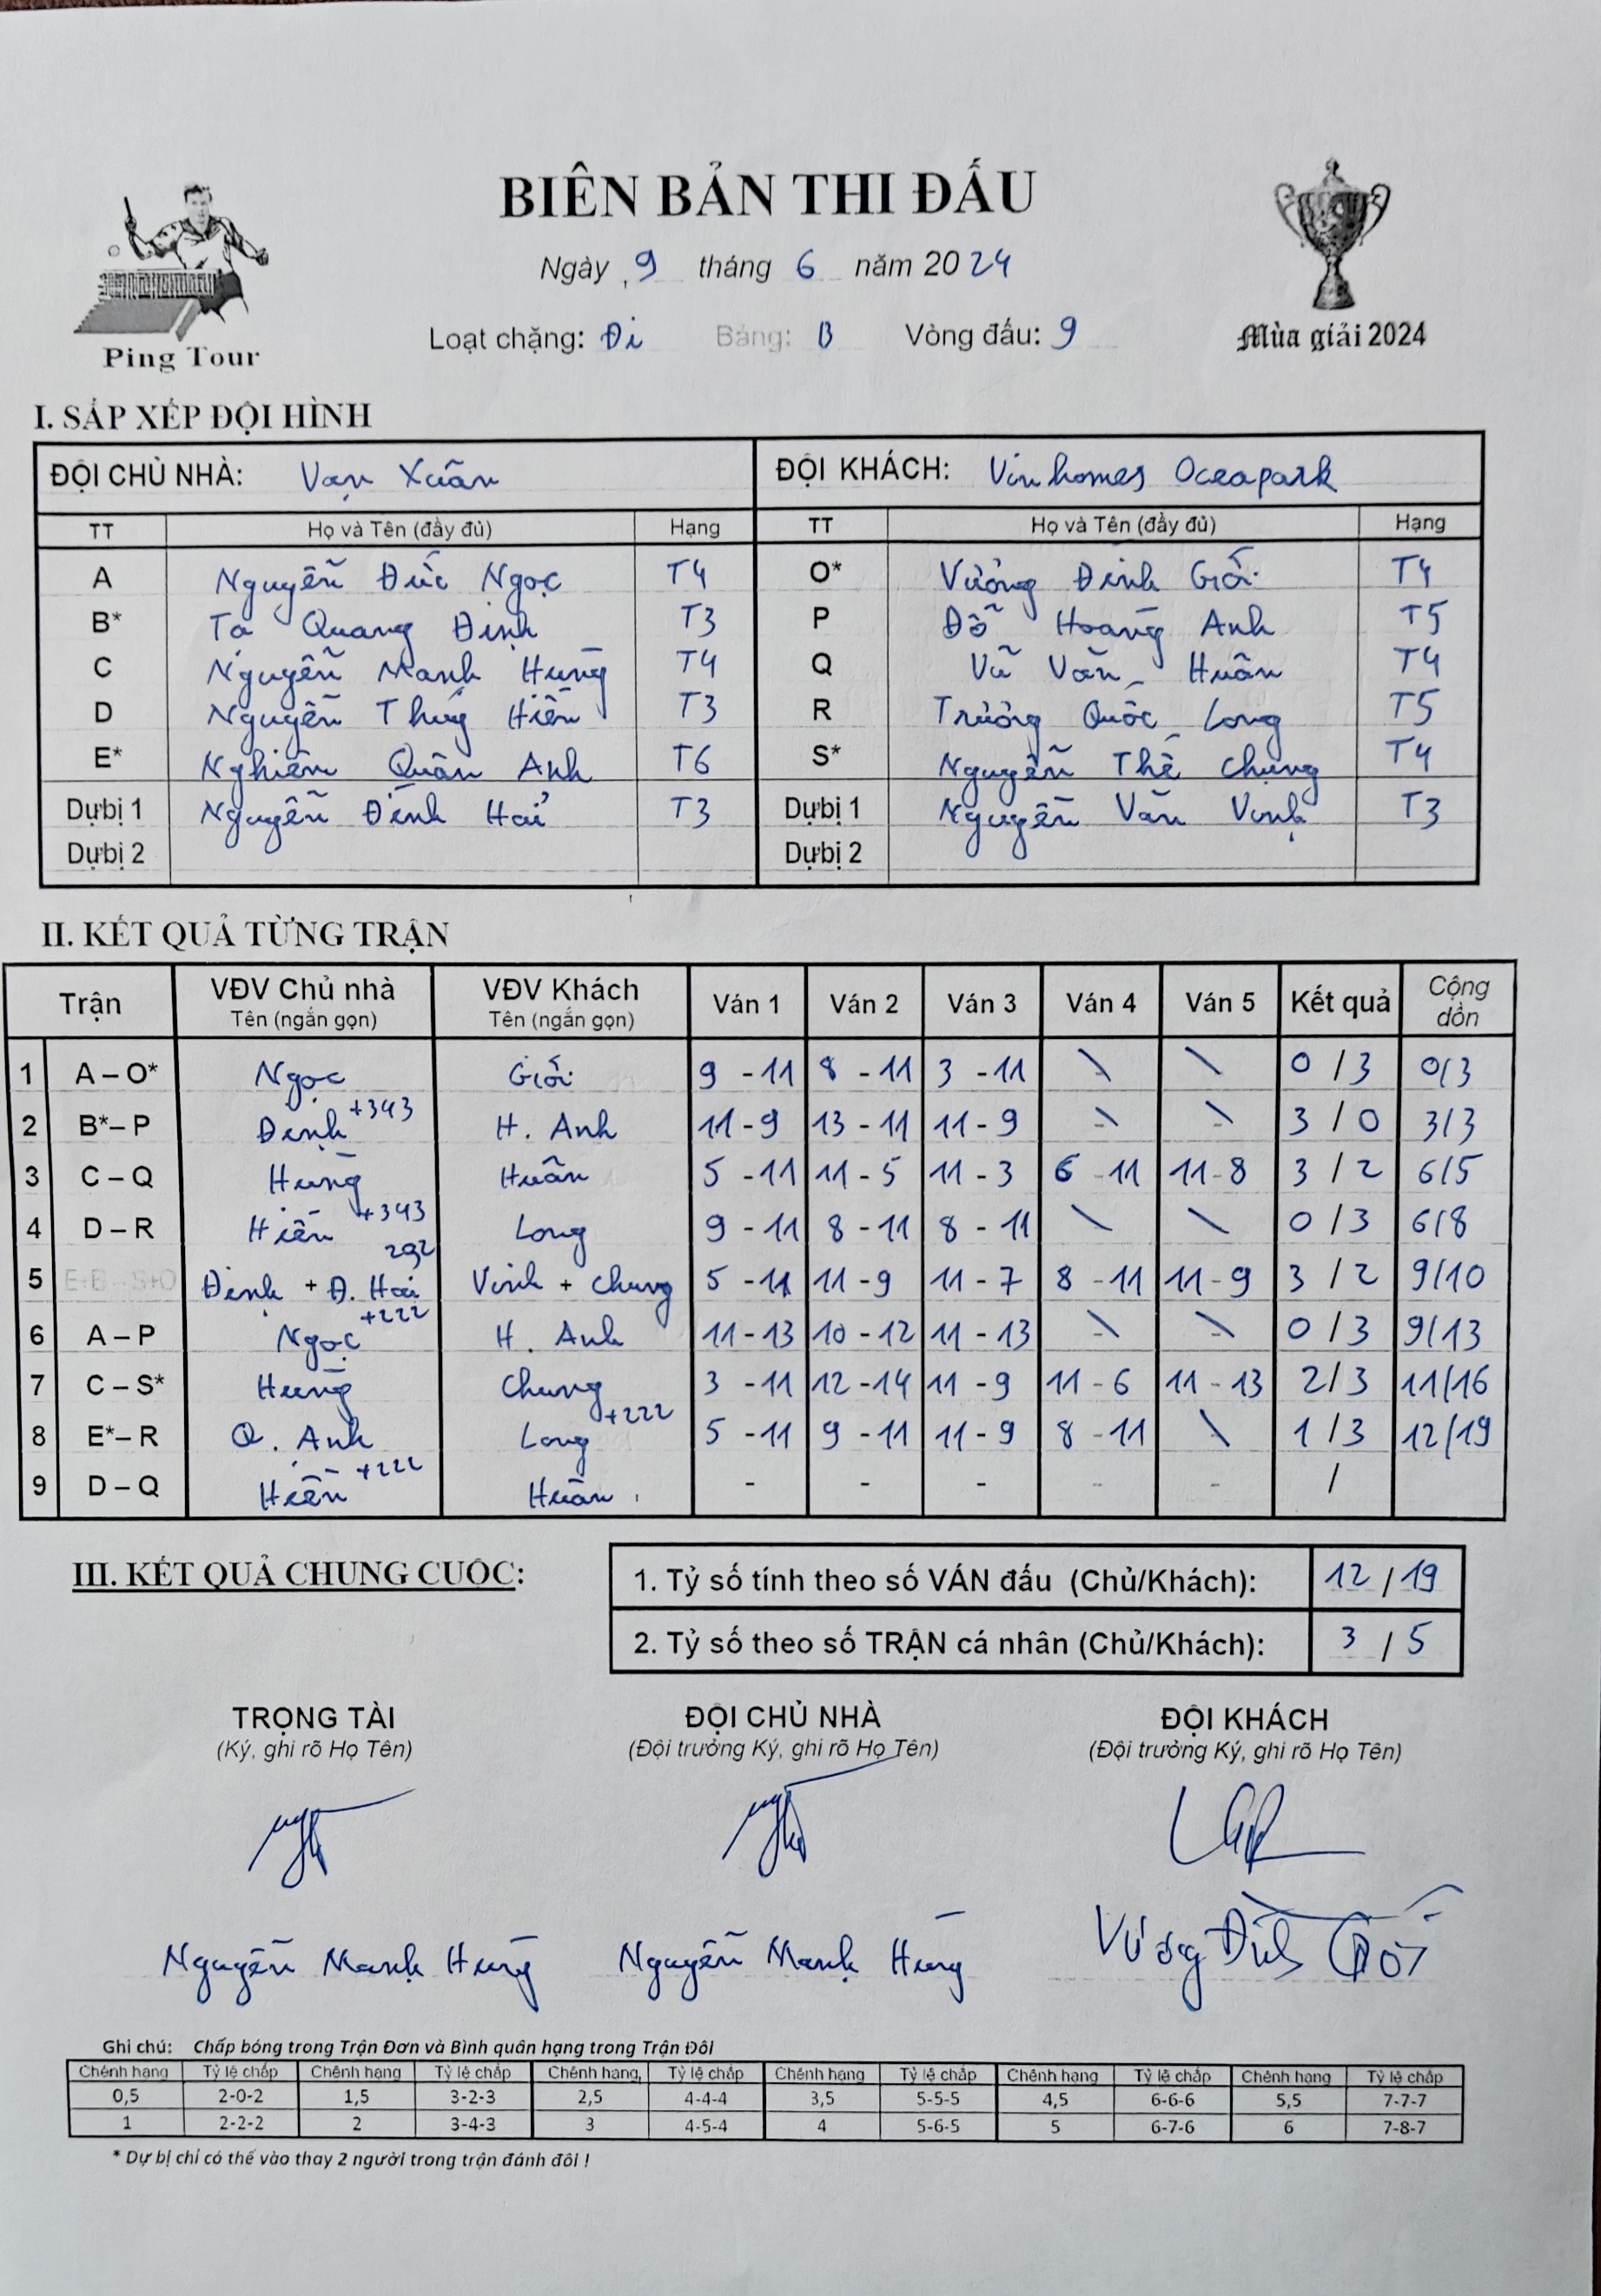 BIÊN BẢN THI ĐẤU
Ngày 9 tháng 6 năm 2024
Loạt chặng: Đi Bảng: B Vòng đấu: 9
Ping Tour
Mùa giải 2024
I. SẮP XẾP ĐỘI HÌNH
ĐỘI CHỦ NHÀ: Vạn Xuân ĐỘI KHÁCH: Vinhomes Oceapark
TT Họ và Tên (đầy đủ) Hạng TT Họ và Tên (đầy đủ) Hạng
A Nguyễn Đức Ngọc T4 O* Vương Đình Giới T4
B* Tạ Quang Định T3 P Đỗ Hoàng Anh T5
C Nguyễn Mạnh Hùng T4 Q Vũ Văn Huân T4
D Nguyễn Thúy Hiền T3 R Trương Quốc Long T5
E* Nghiêm Quân Anh T6 S* Nguyễn Thế Chung T4
Dự bị 1 Nguyễn Đình Hải T3 Dự bị 1 Nguyễn Văn Vinh T3
Dự bị 2 Dự bị 2
II. KẾT QUẢ TỪNG TRẬN
Trận VĐV Chủ nhà VĐV Khách Ván 1 Ván 2 Ván 3 Ván 4 Ván 5 Kết quả Cộng dồn
Tên (ngắn gọn) Tên (ngắn gọn)
1 A – O* Ngọc Giới 9 - 11 8 - 11 3 - 11 \ \ 0 / 3 0/3
2 B* – P Định +343 H. Anh 11 - 9 13 - 11 11 - 9 \ \ 3 / 0 3/3
3 C – Q Hùng Huân 5 - 11 11 - 5 11 - 3 6 - 11 11 - 8 3 / 2 6/5
4 D – R Hiền +343 Long 9 - 11 8 - 11 8 - 11 \ \ 0 / 3 6/8
5 E+B – S+O Định + Đ. Hải 292 Vinh + Chung 5 - 11 11 - 9 11 - 7 8 - 11 11 - 9 3 / 2 9/10
6 A – P Ngọc +222 H. Anh 11 - 13 10 - 12 11 - 13 \ \ 0 / 3 9/13
7 C – S* Hùng Chung 3 - 11 12 - 14 11 - 9 11 - 6 11 - 13 2/3 11/16
8 E* – R Q. Anh Long +222 5 - 11 9 - 11 11 - 9 8 - 11 \ 1 / 3 12/19
9 D – Q Hiền +222 Huân - - - - - /
III. KẾT QUẢ CHUNG CUỘC:
1. Tỷ số tính theo số VÁN đấu (Chủ/Khách): 12 / 19
2. Tỷ số theo số TRẬN cá nhân (Chủ/Khách): 3 / 5
TRỌNG TÀI ĐỘI CHỦ NHÀ ĐỘI KHÁCH
(Ký, ghi rõ Họ Tên) (Đội trưởng Ký, ghi rõ Họ Tên) (Đội trưởng Ký, ghi rõ Họ Tên)
Nguyễn Mạnh Hùng Nguyễn Mạnh Hùng Vương Đình Giới
Ghi chú: Chấp bóng trong Trận Đơn và Bình quân hạng trong Trận Đôi
Chênh hạng Tỷ lệ chấp Chênh hạng Tỷ lệ chấp Chênh hạng Tỷ lệ chấp Chênh hạng Tỷ lệ chấp Chênh hạng Tỷ lệ chấp Chênh hạng Tỷ lệ chấp
0,5 2-0-2 1,5 3-2-3 2,5 4-4-4 3,5 5-5-5 4,5 6-6-6 5,5 7-7-7
1 2-2-2 2 3-4-3 3 4-5-4 4 5-6-5 5 6-7-6 6 7-8-7
* Dự bị chỉ có thể vào thay 2 người trong trận đánh đôi !